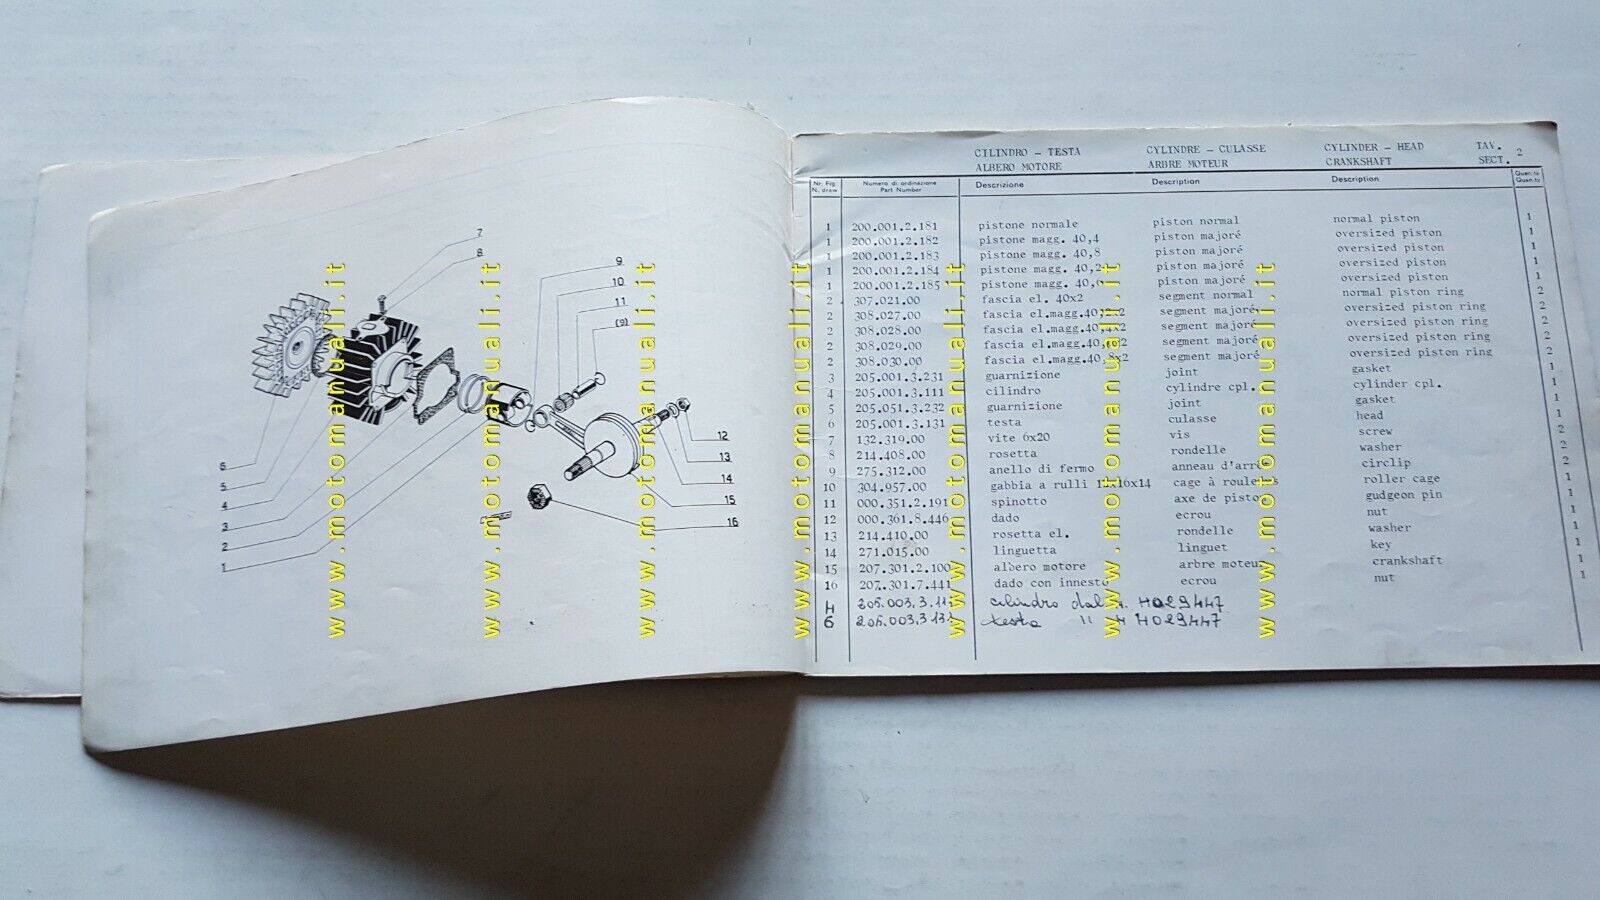 7
8
9
10
11
(9)
6
5
4
3
2
1
12
13
14
15
16
www.motomanuali.it
www.motomanuali.it
www.motomanuali.it
www.motomanuali.it
www.motomanuali.it
www.motomanuali.it
www.motomanuali.it
CILINDRO - TESTA CYLINDRE - CULASSE CYLINDER - HEAD TAV. 2
ALBERO MOTORE ARBRE MOTEUR CRANKSHAFT SECT.
Nr. Fig. Numero di ordinazione Descrizione Description Description Quan.tà
N. draw Part Number Quan.ty
1 200.001.2.181 pistone normale piston normal normal piston 1
1 200.001.2.182 pistone magg. 40,4 piston majoré oversized piston 1
1 200.001.2.183 pistone magg. 40,8 piston majoré oversized piston 1
1 200.001.2.184 pistone magg. 40,2 piston majoré oversized piston 1
1 200.001.2.185 pistone magg. 40,6 piston majoré oversized piston 1
2 307.021.00 fascia el. 40x2 segment normal normal piston ring 2
2 308.027.00 fascia el.magg.40,2x2 segment majoré oversized piston ring 2
2 308.028.00 fascia el.magg.40,4x2 segment majoré oversized piston ring 2
2 308.029.00 fascia el.magg.40,6x2 segment majoré oversized piston ring 2
2 308.030.00 fascia el.magg.40,8x2 segment majoré oversized piston ring 2
3 205.001.3.231 guarnizione joint gasket 1
4 205.001.3.111 cilindro cylindre cpl. cylinder cpl. 1
5 205.051.3.232 guarnizione joint gasket 1
6 205.001.3.131 testa culasse head 1
7 132.319.00 vite 6x20 vis screw 2
8 214.408.00 rosetta rondelle washer 2
9 275.312.00 anello di fermo anneau d'arrêt circlip 2
10 304.957.00 gabbia a rulli 12x16x14 cage à rouleaus roller cage 1
11 000.351.2.191 spinotto axe de piston gudgeon pin 1
12 000.361.8.446 dado ecrou nut 1
13 214.410.00 rosetta el. rondelle washer 1
14 271.015.00 linguetta linguet key 1
15 207.301.2.100 albero motore arbre moteur crankshaft 1
16 207.301.7.441 dado con innesto ecrou nut 1
4 205.003.3.11 cilindro dal H029447
6 205.003.3.131 testa " " H029447